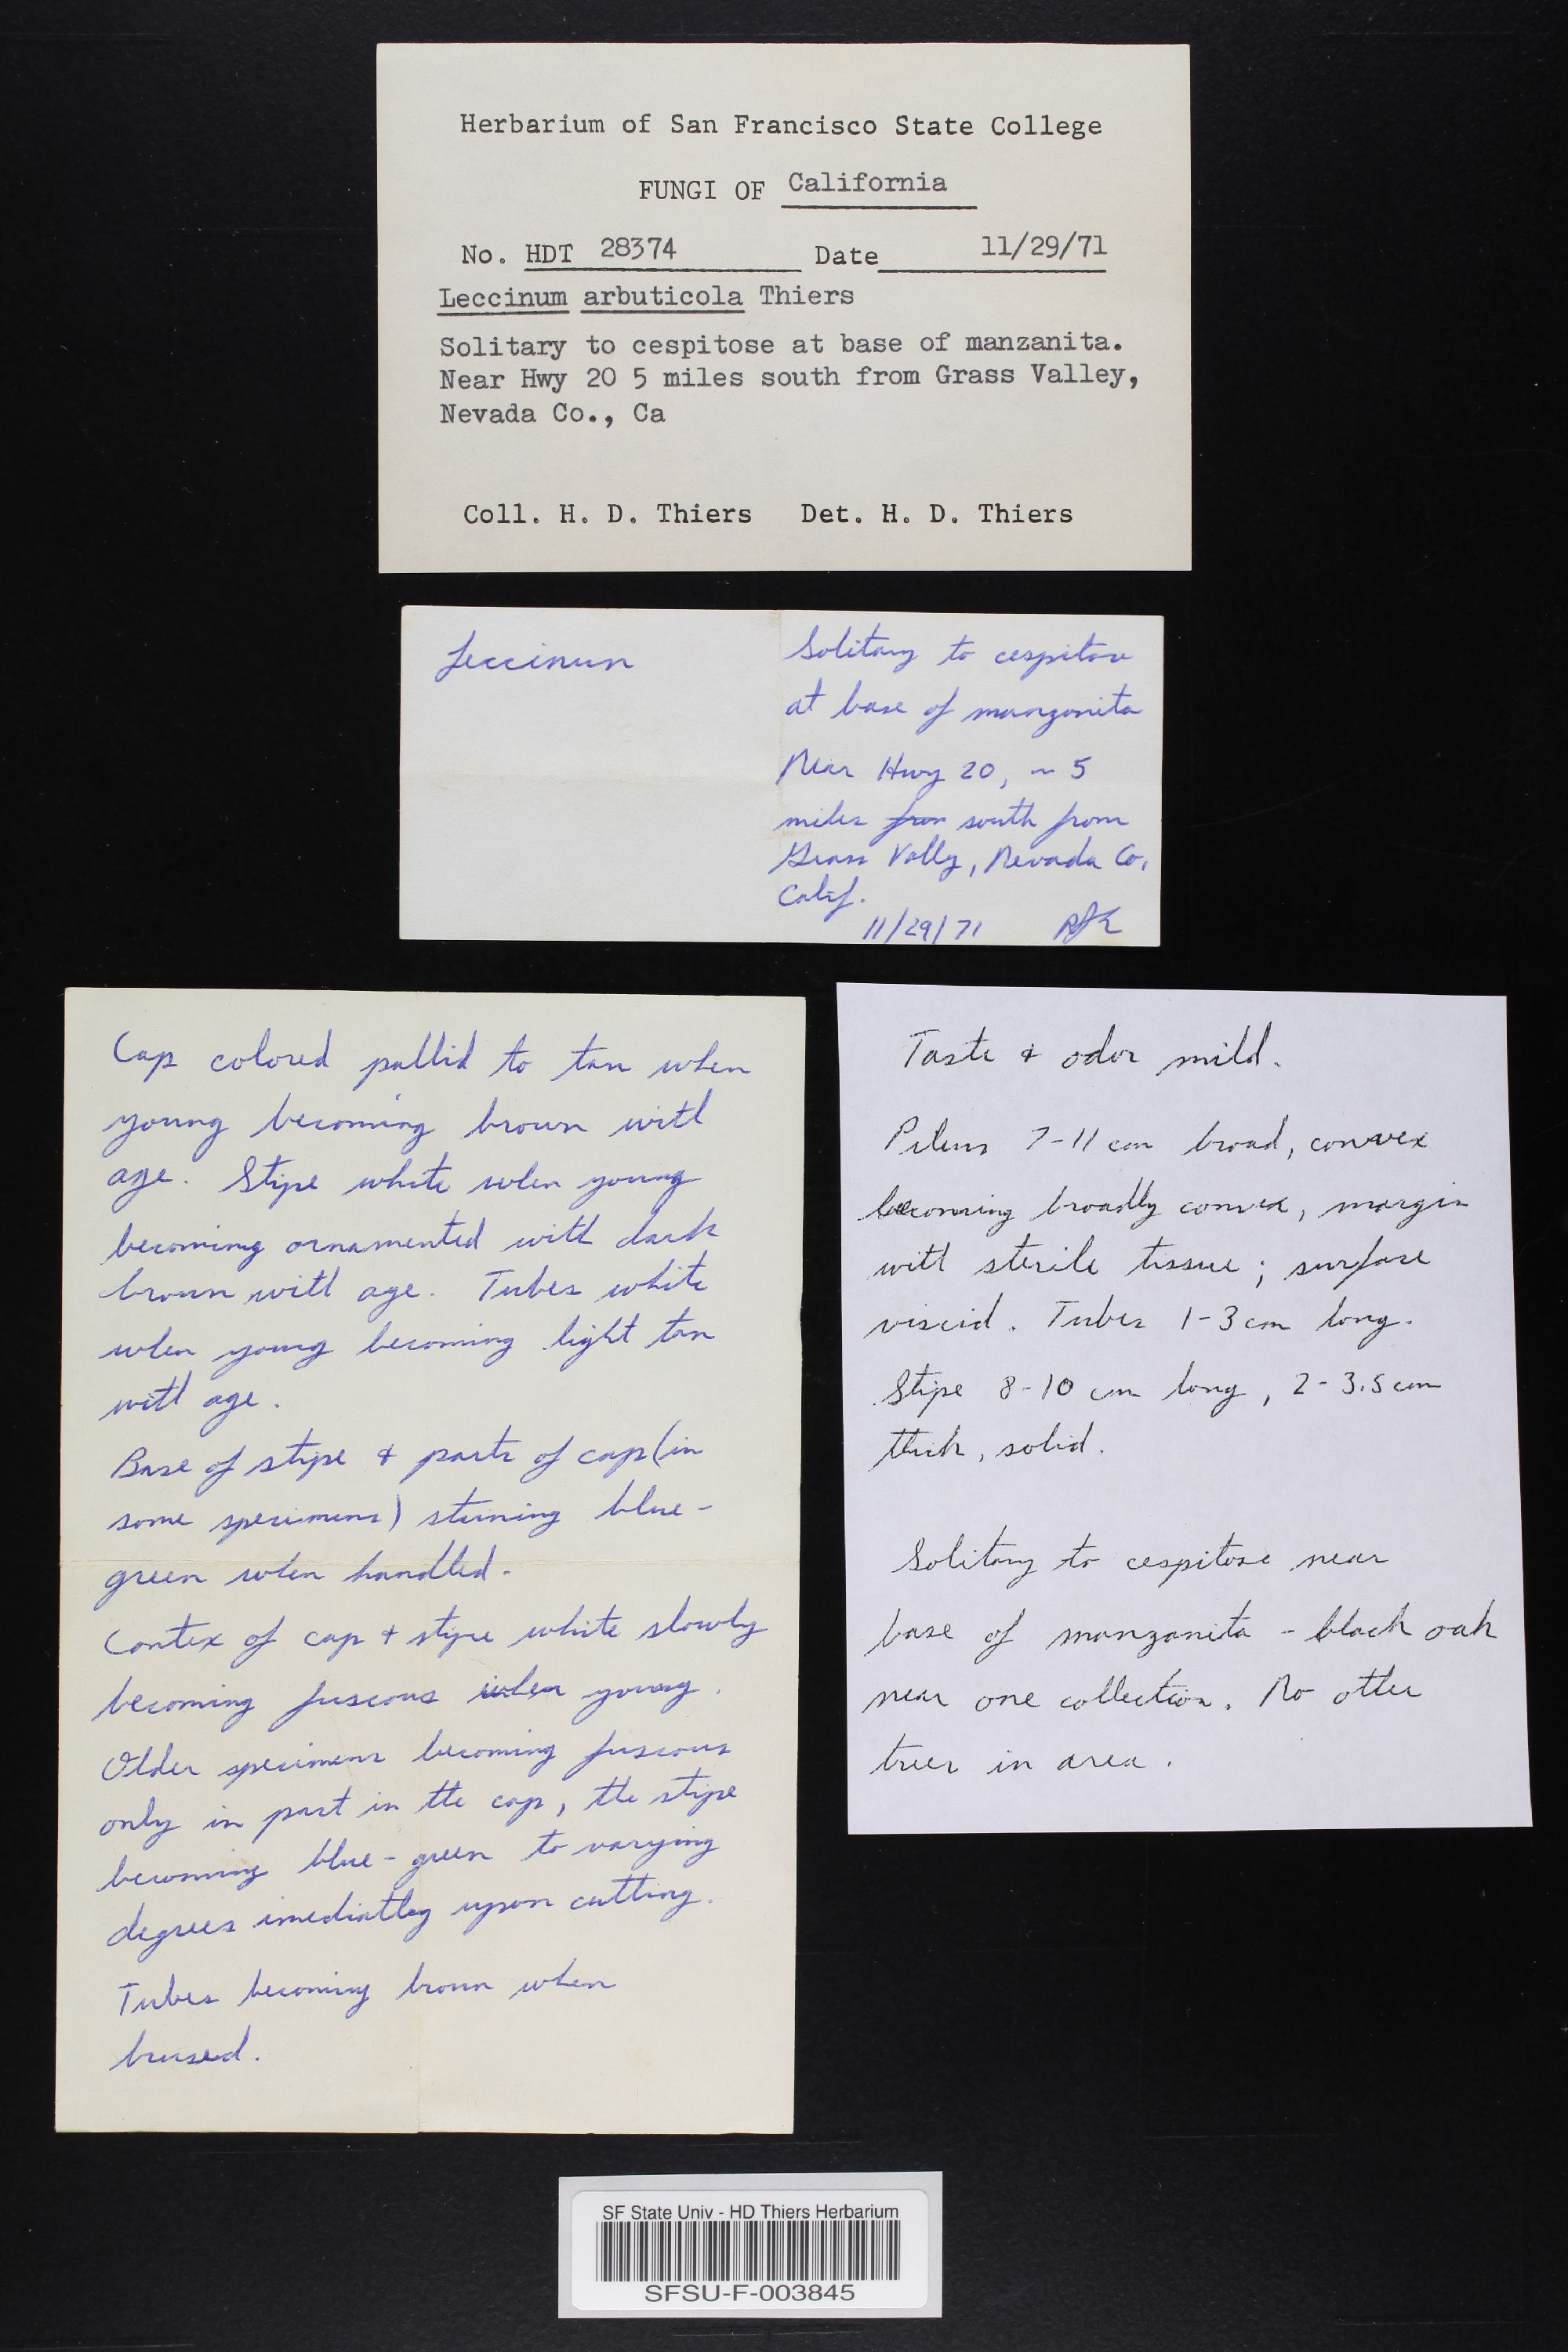 Herbarium of San Francisco State College
FUNGI OF California
No. HDT 28374 Date 11/29/71
Leccinum arbuticola Thiers
Solitary to cespitose at base of manzanita.
Near Hwy 20 5 miles south from Grass Valley,
Nevada Co., Ca
Coll. H. D. Thiers Det. H. D. Thiers
Leccinum
Solitary to cespitose
at base of manzanita
Near Hwy 20, ~ 5
miles from south from
Grass Vally, Nevada Co,
Calif.
11/29/71
Cap colored pallid to tan when
young becoming brown with
age. Stipe white when young
becoming ornamented with dark
brown with age. Tubes white
when young becoming light tan
with age.
Base of stipe & parts of cap (in
some specimens) staining blue-
green when handled.
Contex of cap & stipe white slowly
becoming fuscous when young.
Older specimens becoming fuscous
only in part in the cap, the stipe
becoming blue-green to varying
degrees imediatley upon cutting.
Tubes becoming brown when
brused.
Taste & odor mild.
Pileus 7-11 cm broad, convex
becoming broadly convex, margin
with sterile tissue; surface
viscid. Tubes 1-3 cm long.
Stipe 8-10 cm long, 2-3.5 cm
thick, solid.
Solitary to cespitose near
base of manzanita - black oak
near one collection. No other
trees in area.
SF State Univ - HD Thiers Herbarium
SFSU-F-003845